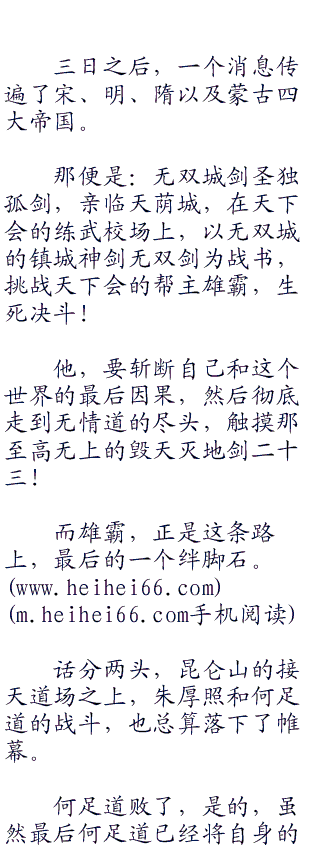 三日之后，一个消息传
遍了宋、明、隋以及蒙古四
大帝国。
那便是：无双城剑圣独
孤剑，亲临天荫城，在天下
会的练武校场上，以无双城
的镇城神剑无双剑为战书，
挑战天下会的帮主雄霸，生
死决斗！
他，要斩断自己和这个
世界的最后因果，然后彻底
走到无情道的尽头，触摸那
至高无上的毁天灭地剑二十
三！
而雄霸，正是这条路
上，最后的一个绊脚石。
(www.heihei66.com)
(m.heihei66.com手机阅读)
话分两头，昆仑山的接
天道场之上，朱厚照和何足
道的战斗，也总算落下了帷
幕。
何足道败了，是的，虽
然最后何足道已经将自身的